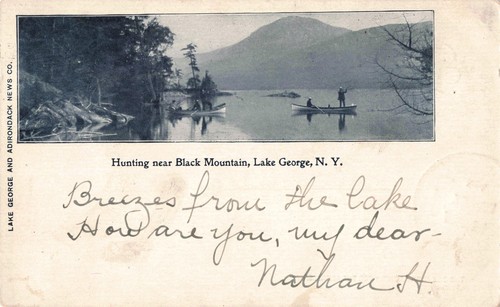 LAKE GEORGE AND ADIRONDACK NEWS CO.
Hunting near Black Mountain, Lake George, N. Y.
Breezes from the lake
How are you, my dear-
Nathan H.